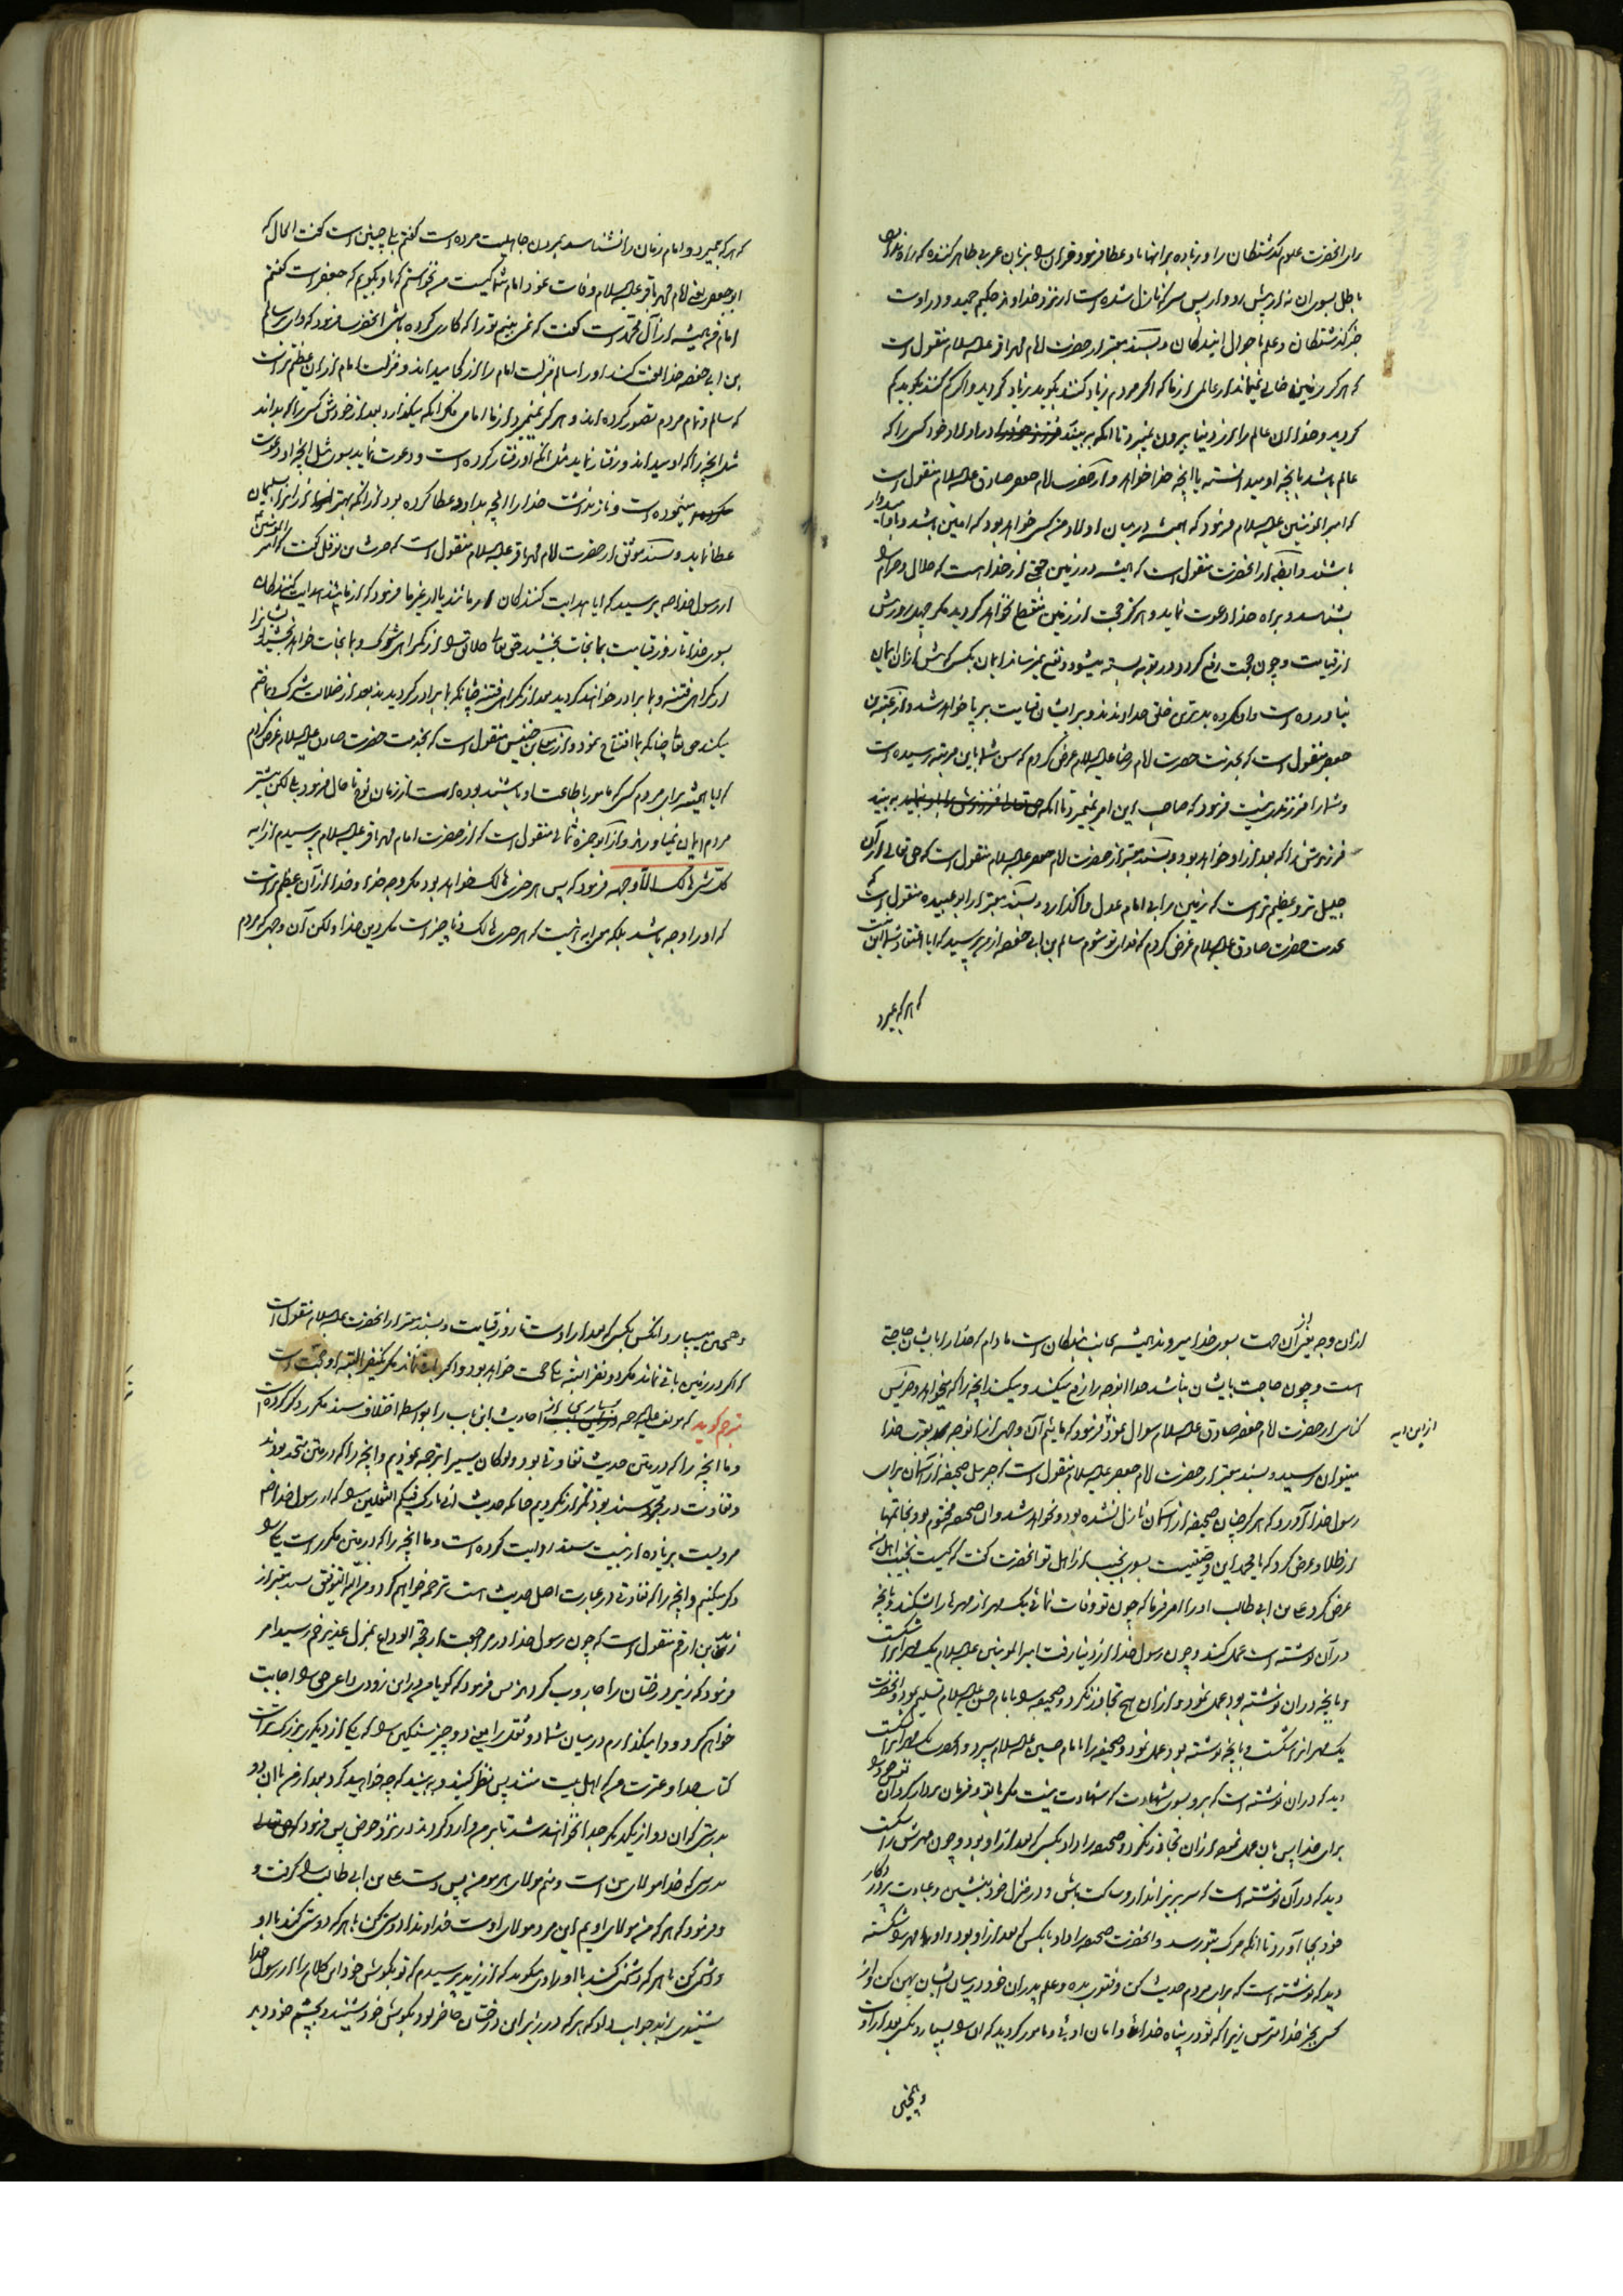 برای آنحضرت علوم گذشتگان را و زیاده بر آنها باو عطا فرمود قرآن را بزبان عربی ظاهر کننده که راه
باطل بسوی آن نه از پیش رو و از پس سر که نازل شده است از نزد خداوند حکیم حمید و در اوست
خبر گذشتگان و علم باحوال آیندگان و بسند معتبر از حضرت امام محمد باقر علیه السلام منقول است
که هرگز زمین خالی نمیماند از عالمی از ما که اگر مردم زیاد کنند بگوید زیاد کردید و اگر کم کنند بگوید کم
کردید و خدا آن عالم را از دنیا بیرون نمیبرد تا آنکه به بیند در اولاد خود کسی را که
عالم باشد بآنچه او میدانسته یا آنچه خدا خواهد و از حضرت امام جعفر صادق علیه السلام منقول است
که امیر المومنین علیه السلام فرمود که همیشه در میان اولاد من کسی خواهد بود که امین باشد و باو امیدوار
باشند و ایضا از آنحضرت منقول است که همیشه در زمین حجتی از خدا هست که حلال و حرام را
بشناسد و براه خدا دعوت نماید و هرگز حجت از زمین منقطع نخواهد گردید مگر چهل روز پیش
از قیامت و چون حجت رفع گردد در توبه بسته میشود و نفع نمیرساند ایمان بکسی که پیش از آن ایمان
نیاورده است و آنگروه بدترین خلق خداوندند و بر ایشان قیامت بر پا خواهد شد و از عقبة بن
جعفر منقول است که بخدمت حضرت امام رضا علیه السلام عرض کردم که سن شما باین مرتبه رسیده است
و شما را فرزندی نیست فرمود که صاحب این امر نمیمیرد تا آنکه به بیند
فرزندش را که بعد از او خواهد بود و بسند معتبر از حضرت امام جعفر علیه السلام منقول است که حق تعالی از آن
جلیل تر و عظیم تر است که زمین را بی امام عدل واگذارد و بسند معتبر از ابو عبیده منقول است که
بخدمت حضرت صادق علیه السلام عرض کردم که فدای تو شوم سالم بن ابی حفصه از من پرسید که آیا اعتقاد شما این نیست
که هر که بمیرد
که هر که بمیرد و امام زمان را نشناسد بمردن جاهلیت مرده است گفتم بلی چنین است گفت الحال که
ابو جعفر یعنی امام محمد باقر علیه السلام وفات نمود امام شما کیست من نخواستم که باو بگویم که جعفر است گفتم
امام من همیشه از آل محمد است گفت که نمی بینم تو را که کاری کرده باشی آنحضرت فرمود که وای بر سالم
بن ابی حفصه خدا لعنت کند او را سالم منزلت امام را از کجا میداند و منزلت امام از آن عظیم تر است
که سالم و تمام مردم تصور کرده اند و هرگز نمیمیرد از ما امامی مگر آنکه میگذارد بعد از خودش کسی را که بداند
مثل آنچه را که او میداند و رفتار نماید مثل آنکه او رفتار کرده است و دعوت نماید بسوی مثل آنچه او دعوت
مینموده است و باز نداشت خدا را آنچه بداود عطا کرده بود از آنکه بهتر از آن را بسلیمان
عطا نماید و بسند موثق از حضرت امام محمد باقر علیه السلام منقول است که حرث بن نوفل گفت که امیر المومنین
از رسول خدا ص پرسید که آیا هدایت کنندگان از ما نند یا از غیر ما فرمود که از ما نند هدایت کنندگان
بسوی خدا تا روز قیامت بما نجات بخشید حق تعالی خلایق را از گمراهی شرک و بما نجات خواهد بخشید ایشانرا
از گمراهی فتنه و بما برادر خواهند گردید بعد از گمراهی فتنه چنانکه بما برادر گردیدند بعد از ضلالت شرک و بما ختم
میکند حق تعالی چنانکه بما افتتاح نمود و از معلی بن خنیس منقول است که بخدمت حضرت صادق علیه السلام عرض کردم
که آیا همیشه برای مردم کسی که مامور باطاعت او باشند بوده است از زمان نوح تا حال فرمود بلی لکن بیشتر
مردم ایمان نیاورند و از ابو حمزه ثمالی منقول است که از حضرت امام محمد باقر علیه السلام پرسیدم از آیه
کل شی هالک الا وجهه فرمود که پس هر چیز هالک خواهد بود مگر وجه خدا و خدا از آن عظیم تر است
که او را وجه باشد بلکه معنی آیه اینست که هر چیزی هالک و ناچیز است مگر دین خدا و لکن آن وجهی که مردم
از آن وجه بغیر از آن جهت بسوی خدا میروند همیشه میان بندگان است مادام که خدا را بایشان حاجتی
است و چون حاجت بایشان نباشد خدا آنوجه را رفع میکند و میکند آنچه را که میخواهد و خزنیس
از این آیه
کناسی از حضرت امام جعفر صادق علیه السلام سوال نمود فرمود که مائیم آن وجهی که از آنوجه بقرب خدا
میتوان رسید و بسند معتبر از حضرت امام جعفر علیه السلام منقول است که جبرئیل صحیفه از آسمان برای
رسول خدا آورد که هرگز چنان صحیفه از آسمان نازل نشده بود و نخواهد شد و آن صحیفه مختوم بود بخاتمها
از طلا و عرض کرد که یا محمد این وصیتیست بسوی نجیب از اهل تو آنحضرت گفت که کیست نجیب اهل من
عرض کرد علی بن ابی طالب او را امر فرما که چون تو وفات نمائی یک مهر از مهرها را بشکند و بآنچه
در آن نوشته است عمل کند و چون رسول خدا از دنیا رفت امیر المومنین علیه السلام یک مهر آنرا شکست
و بآنچه در آن نوشته بود عمل نمود و از آن هیچ تجاوز نکرد و صحیفه را بامام حسن علیه السلام تسلیم نمود و آنحضرت
یک مهر آنرا شکست و بآنچه نوشته بود عمل نمود و صحیفه را بامام حسین علیه السلام سپرد و آنحضرت یک مهر آنرا شکست
دید که در آن نوشته است که برو بسوی شهادت که شهادت نیست مگر با تو و نفس خود را
برای خدا پس بآن عمل نمود و از آن تجاوز نکرد و صحیفه را داد بکسی که بعد از او بود و چون مهرش را شکست
دید که در آن نوشته است که سر بزیر انداز و ساکت باش و در منزل خود بنشین و عبادت پروردگار
خود بجا آور تا آنکه مرگ بتو رسد و آنحضرت صحیفه را داد بآنکسی که بعد از او بود و او مهر را شکسته
دید که نوشته است که برای مردم حدیث کن و فتوی بده و علم پدران خود در میان ایشان پهن کن و از
کسی بجز خدا مترس زیرا که تو در پناه خدا و امان اوئی و مامور گردید که آن را بسپارد بکسی که بعد از اوست
و همچنین
و همچنین میسپارد آنکس بکسی که بعد از اوست تا روز قیامت و بسند معتبر از آنحضرت علیه السلام منقول است
که اگر در زمین باقی نماند مگر دو نفر البته یکی حجت خواهد بود و اگر باقی نماند مگر یکنفر البته او حجت است
مترجم گوید که مولف علیه الرحمه بسیاری از احادیث این باب را بواسطه اختلاف سند مکرر ذکر کرده است
و ما آنچه را که در متن حدیث تفاوتی بود ولو کان یسیرا ترجمه نمودیم و آنچه را که در متن متحد بودند
و تفاوت در مجرد سند بود تکرار نکردیم چنانکه حدیث انی تارک فیکم الثقلین را که از رسول خدا ص
مرویست بزیاده از بیست سند روایت کرده است و ما آنچه را که در متن مکرر است یکی را
ذکر میکنیم و آنچه را که تفاوتی در عبارت اصل حدیث است ترجمه خواهیم کرد و من الله التوفیق بسند معتبر از
زید بن ارقم منقول است که چون رسول خدا در مراجعت از حجة الوداع بمنزل غدیر خم رسید امر
فرمود که زیر درختان را جاروب کردند پس فرمود که گویا مرا در این زودی داعی حق را اجابت
خواهم کرد و وا میگذارم در میان شما دو ثقل را یعنی دو چیز سنگین را که یکی از دیگری بزرگتر است
کتاب خدا و عترت من که اهل بیت منند پس نظر کنید و به بینید که چه خواهید کرد بعد از من با آن دو
بدرستی که آن دو از یکدیگر جدا نخواهند شد تا بر من وارد گردند در نزد حوض پس فرمود که
بدرستی که خدا مولای من است و منم مولای هر مومنی پس دست علی بن ابی طالب را گرفت و
فرمود که هر که من مولای اویم این مرد مولای اوست خداوندا دوستی کن با هر که دوستی کند با او و
دشمنی کن با هر که دشمنی کند با او راوی میگوید که از زید پرسیدم که تو بگوش خود این کلام را از رسول خدا
شنیدی زید جواب داد که هر که در زیر این درختان حاضر بود بگوش خود شنید و بچشم خود دید